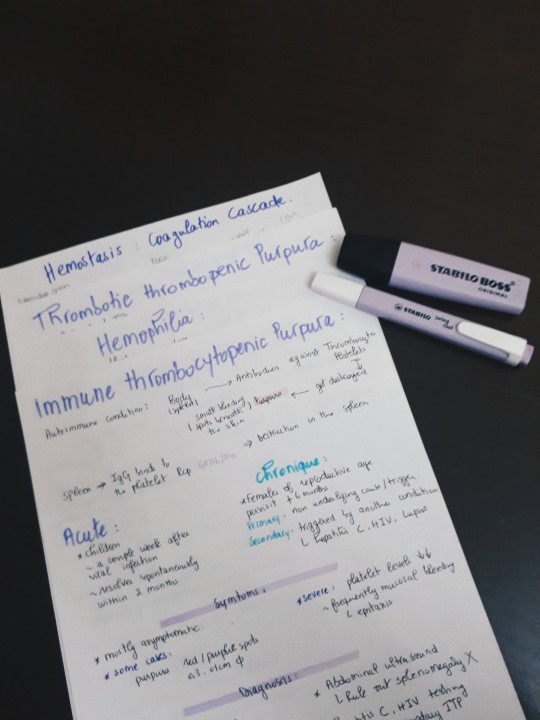 Hemostasis : Coagulation Cascade.
Thrombotic thrombopenic Purpura :
Hemophilia :
Immune thrombocytopenic Purpura :
Autoimmune condition :
Body
(spleen)
→ Antibodies against Thrombocyte
Platelets
↓
get destroyed
←
small bleeding
spots beneath
the skin
Purpura
⇒ Destruction in the spleen
spleen → IgG binds to
the platelet Rcp
Chronique :
* Females of reproductive age
persist + 6 months
Primary : non underlying cause/trigger
Secondary : triggered by another condition
L Hepatitis C, HIV, Lupus
Acute :
* Children
~ a couple week after
viral infection
~ resolves spontaneously
within 2 months
Symtoms :
* mostly asymptomatic
* some cases :
purpura red/purple spots
0.3 - 01cm Φ
* severe : platelet levels ↓↓
~ frequently mucosal bleeding
L epitaxis
Diagnosis :
* Abdominal ultrasound
L Rule out splenomegaly X
C, HIV testing
ITP
STABILO BOSS
ORIGINAL
STABILO swing cool